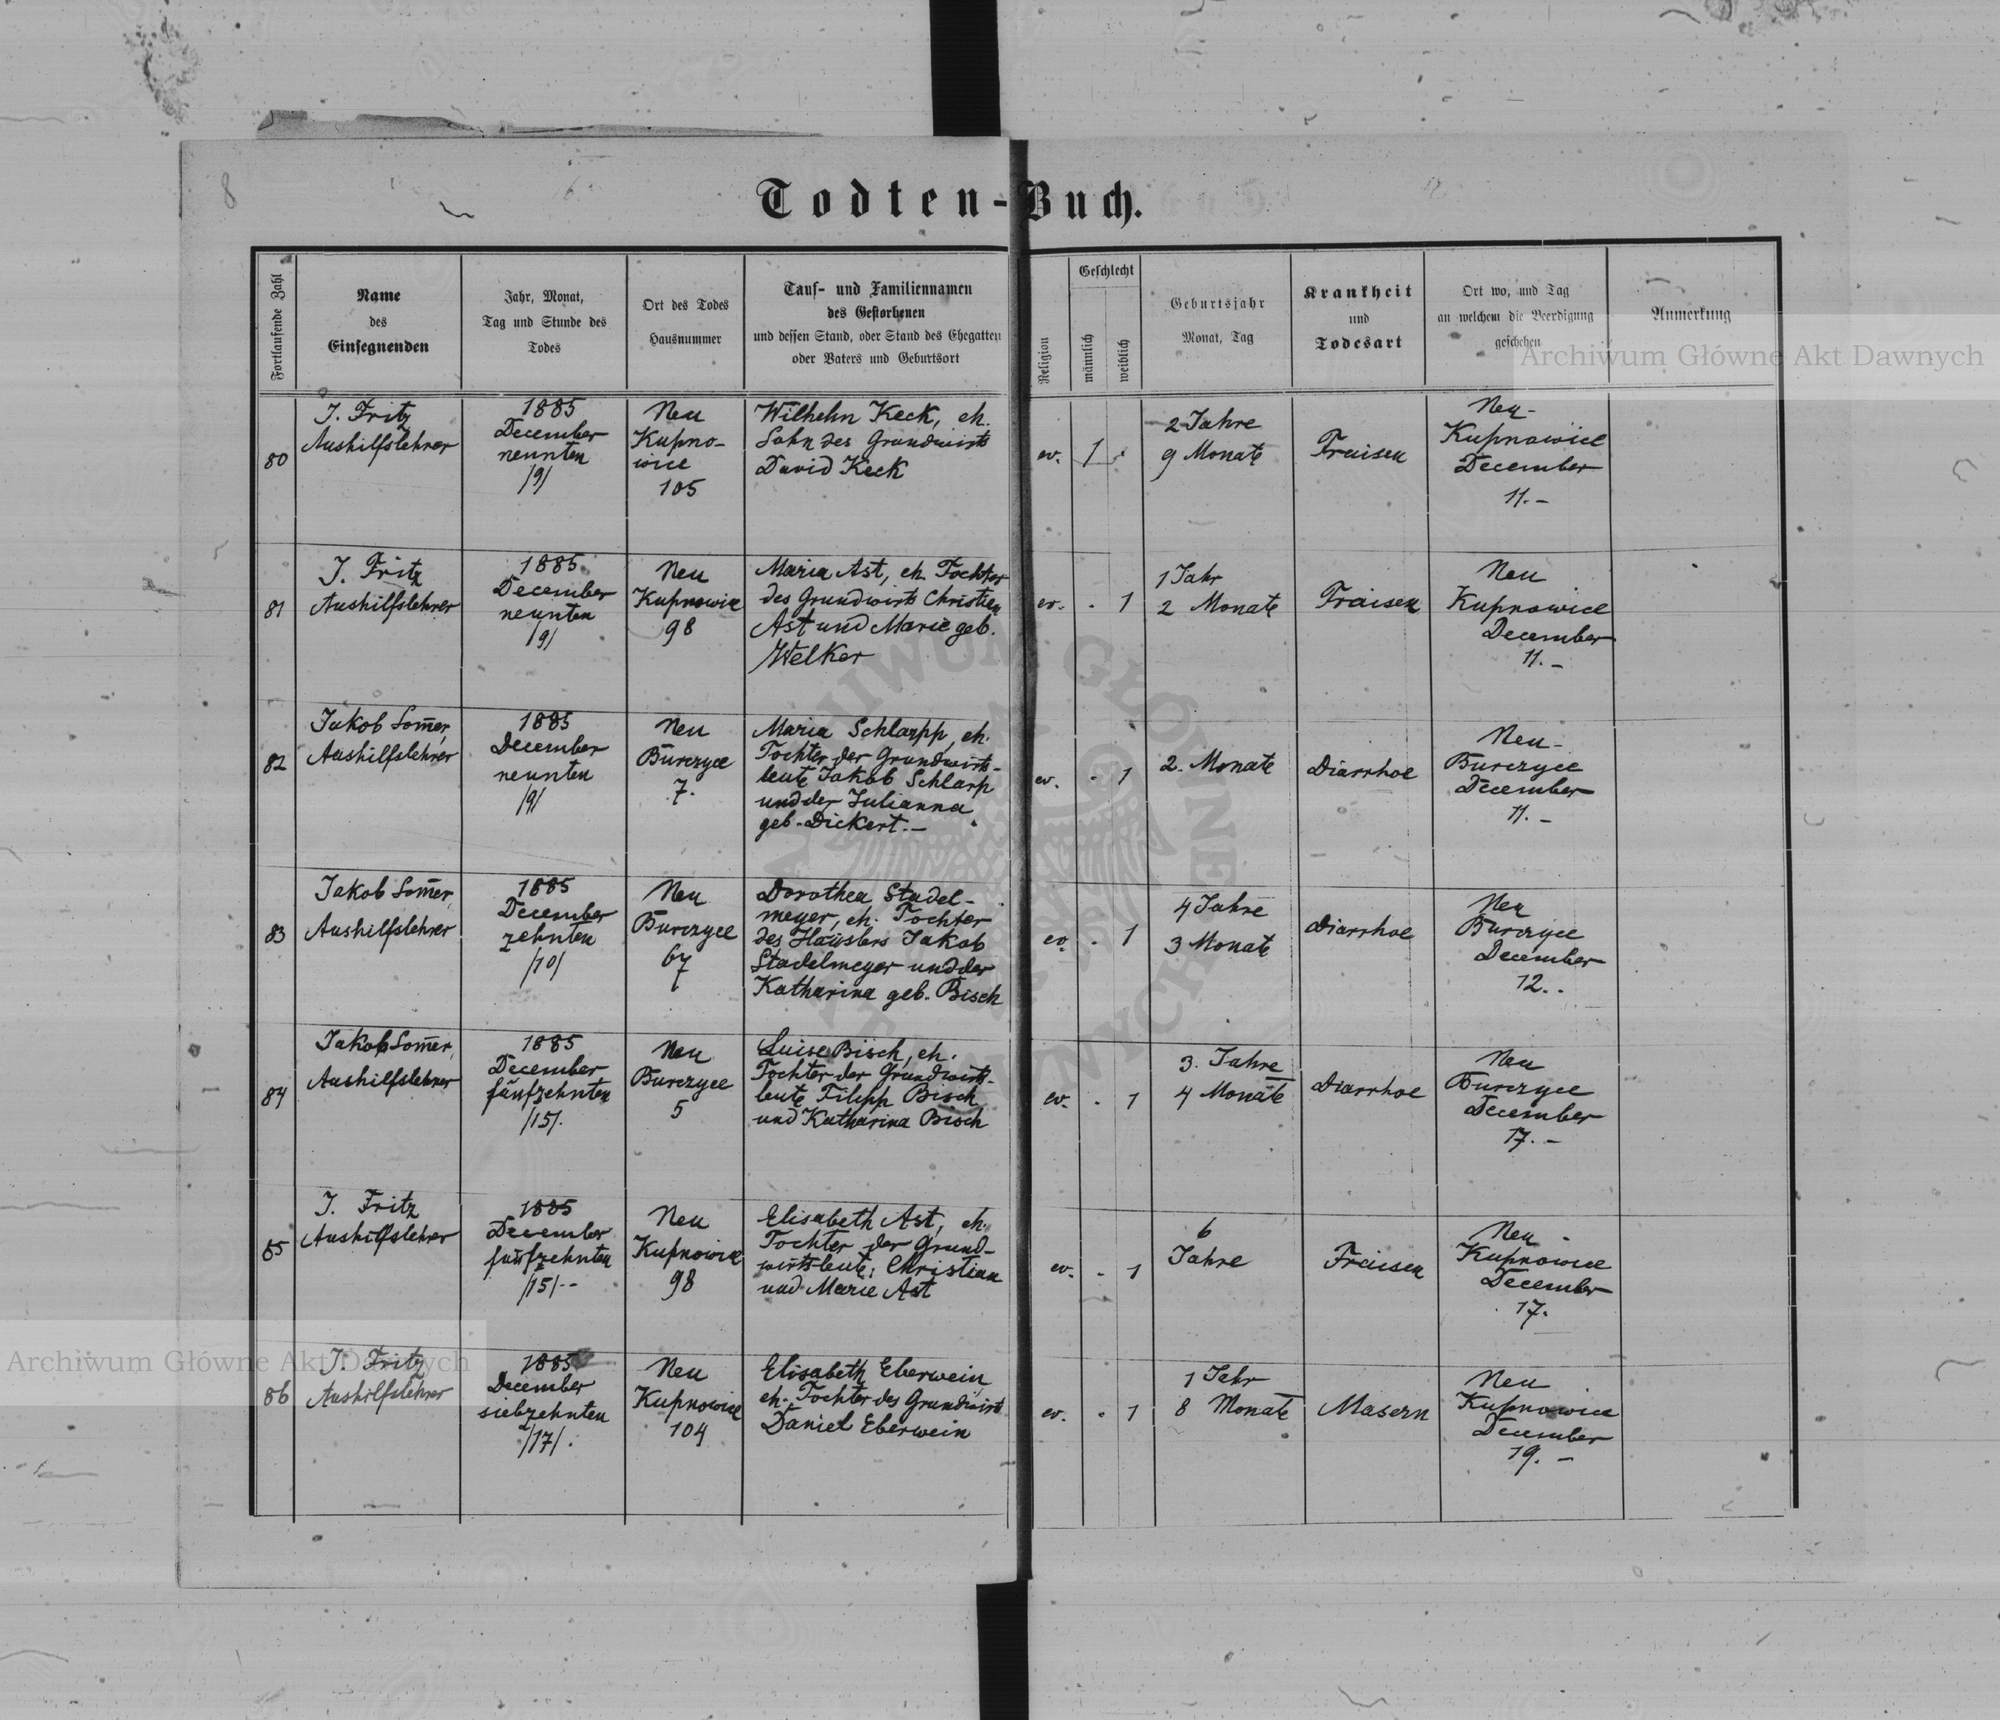 8
Todten-Buch.
Fortlaufende Zahl
Name
des
Einsegnenden
Jahr, Monat,
Tag und Stunde des
Todes
Ort des Todes
Hausnummer
Tauf- und Familiennamen
des Gestorbenen
und dessen Stand, oder Stand des Ehegatten
oder Vaters und Geburtsort
Religion
Geschlecht
männlich
weiblich
Geburtsjahr
Monat, Tag
Krankheit
und
Todesart
Ort wo, und Tag
an welchem die Beerdigung
geschehen
Anmerkung
Archiwum Główne Akt Dawnych
80
J. Fritz
Aushilfslehrer
1885
December
neunten
/9/
Neu
Kupno-
wice
105
Wilhelm Keck, eh.
Sohn des Grundwirts
David Keck
ev.
1
2 Jahre
9 Monate
Fraisen
Neu-
Kupnowice
December
11.-
81
J. Fritz
Aushilfslehrer
1885
December
neunten
/9/
Neu
Kupnowice
98
Maria Ast, eh. Tochter
des Grundwirts Christian
Ast und Marie geb.
Welker
ev. - 1
1 Jahr
2 Monate
Fraisen
Neu
Kupnowice
December
11.-
82
Jakob Som̄er,
Aushilfslehrer
1885
December
neunten
/9/
Neu
Burczyce
7.
Maria Schlarpp, eh.
Tochter der Grundwirts-
leute Jakob Schlarp
und der Julianna
geb. Dickert.-
ev. - 1
2. Monate
Diarrhoe
Neu-
Burczyce
December
11.-
83
Jakob Som̄er,
Aushilfslehrer
1885
December
zehnten
/10/
Neu
Burczyce
67
Dorothea Stadel-
meyer, eh. Tochter
des Häuslers Jakob
Stadelmeyer und der
Katharina geb. Bisch
ev. - 1
4 Jahre
3 Monate
Diarrhoe
Neu
Burczyce
December
12..
84
Jakob Som̄er,
Aushilfslehrer
1885
December
fünfzehnten
/15/.
Neu
Burczyce
5
Luise Bisch, eh.
Tochter der Grundwirts-
leute Filipp Bisch
und Katharina Bisch
ev. - 1
3. Jahre
4 Monate
Diarrhoe
Neu
Burczyce
December
17.-
85
J. Fritz
Aushilfslehrer
1885
December
fünfzehnten
/15/--
Neu
Kupnowice
98
Elisabeth Ast, eh.
Tochter der Grund-
wirtsleute: Christian
und Marie Ast
ev. - 1
6
Jahre
Fraisen
Neu-
Kupnowice
December
17.
86
J. Fritz
Aushilfslehrer
1885
December
siebzehnten
/17/.
Neu
Kupnowice
104
Elisabeth Eberwein,
eh. Tochter des Grundwirts
Daniel Eberwein
ev. - 1
1 Jahr
8 Monate
Masern
Neu
Kupnowice
December
19.-
Archiwum Główne Akt Dawnych